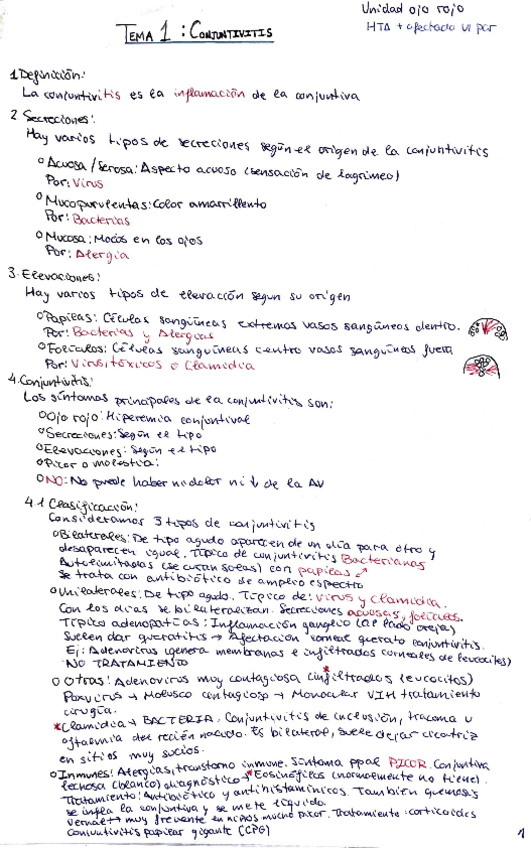 Unidad ojo rojo
HTA + afectado VI par
TEMA 1 : CONJUNTIVITIS
1 Definición:
La conjuntivitis es la inflamación de la conjuntiva
2 Secreciones:
Hay varios tipos de secreciones según el origen de la conjuntivitis
Acuosa / Serosa: Aspecto acuoso (sensación de lagrimeo)
Por: Virus
Mucopurulentas: Color amarillento
Por: Bacterias
Mucosa: Mocos en los ojos
Por: Alergia
3. Elevaciones:
Hay varios tipos de elevación según su origen
Papilas: Células sangüineas extremos vasos sangüneos dentro.
Por: Bacterias y Alergias
Folículos: Células sanguíneas centro vasos sangüíneos fuera
Por: Virus, tóxicos o Clamidia
4. Conjuntivitis:
Los síntomas principales de la conjuntivitis son:
Ojo rojo: Hiperemia conjuntival
Secreciones: Según el tipo
Elevaciones: Según el tipo
Picor o molestia:
NO: No puede haber ni dolor ni ↓ de la AV
4.1 Clasificación:
Consideramos 3 tipos de conjuntivitis
Bilaterales: De tipo agudo aparecen de un día para otro y
desaparecen igual. Típica de conjuntivitis Bacterianas
Autolimitadas (se curan solas) con papilas
Se trata con antibiótico de amplio espectro
Unilaterales: De tipo agudo. Típico de: Virus y Clamidia.
Con los días se bilateralizan. Secreciones acuosas, folículos.
Típico adenopatías: Inflamación ganglio (al lado oreja)
Suelen dar queratitis → Afectación corneal querato conjuntivitis.
Ej: Adenovirus (genera membranas e infiltrados corneales de leucocitos)
NO TRATAMIENTO
Otras: Adenovirus muy contagiosa (infiltrados leucocitos)
Poxvirus → Molusco contagioso → Monocular VIH tratamiento
cirugía.
*Clamidia → BACTERIA. Conjuntivitis de inclusión, tracoma u
oftalmia del recién nacido. Es bilateral, suele dejar cicatriz
en sitios muy sucios.
Inmunes: Alergias, transtorno inmune. Síntoma ppal PICOR. Conjuntiva
lechosa (blanco) diagnóstico → Eosinófilos (normalmente no tiene).
Tratamiento: Antibiótico y antihistamínicos. También quemosis
se infla la conjuntiva y se mete líquido.
Vernal → muy frecuente en niños mucho picor. Tratamiento: corticoides
Conjuntivitis papilar gigante (CPG)
1